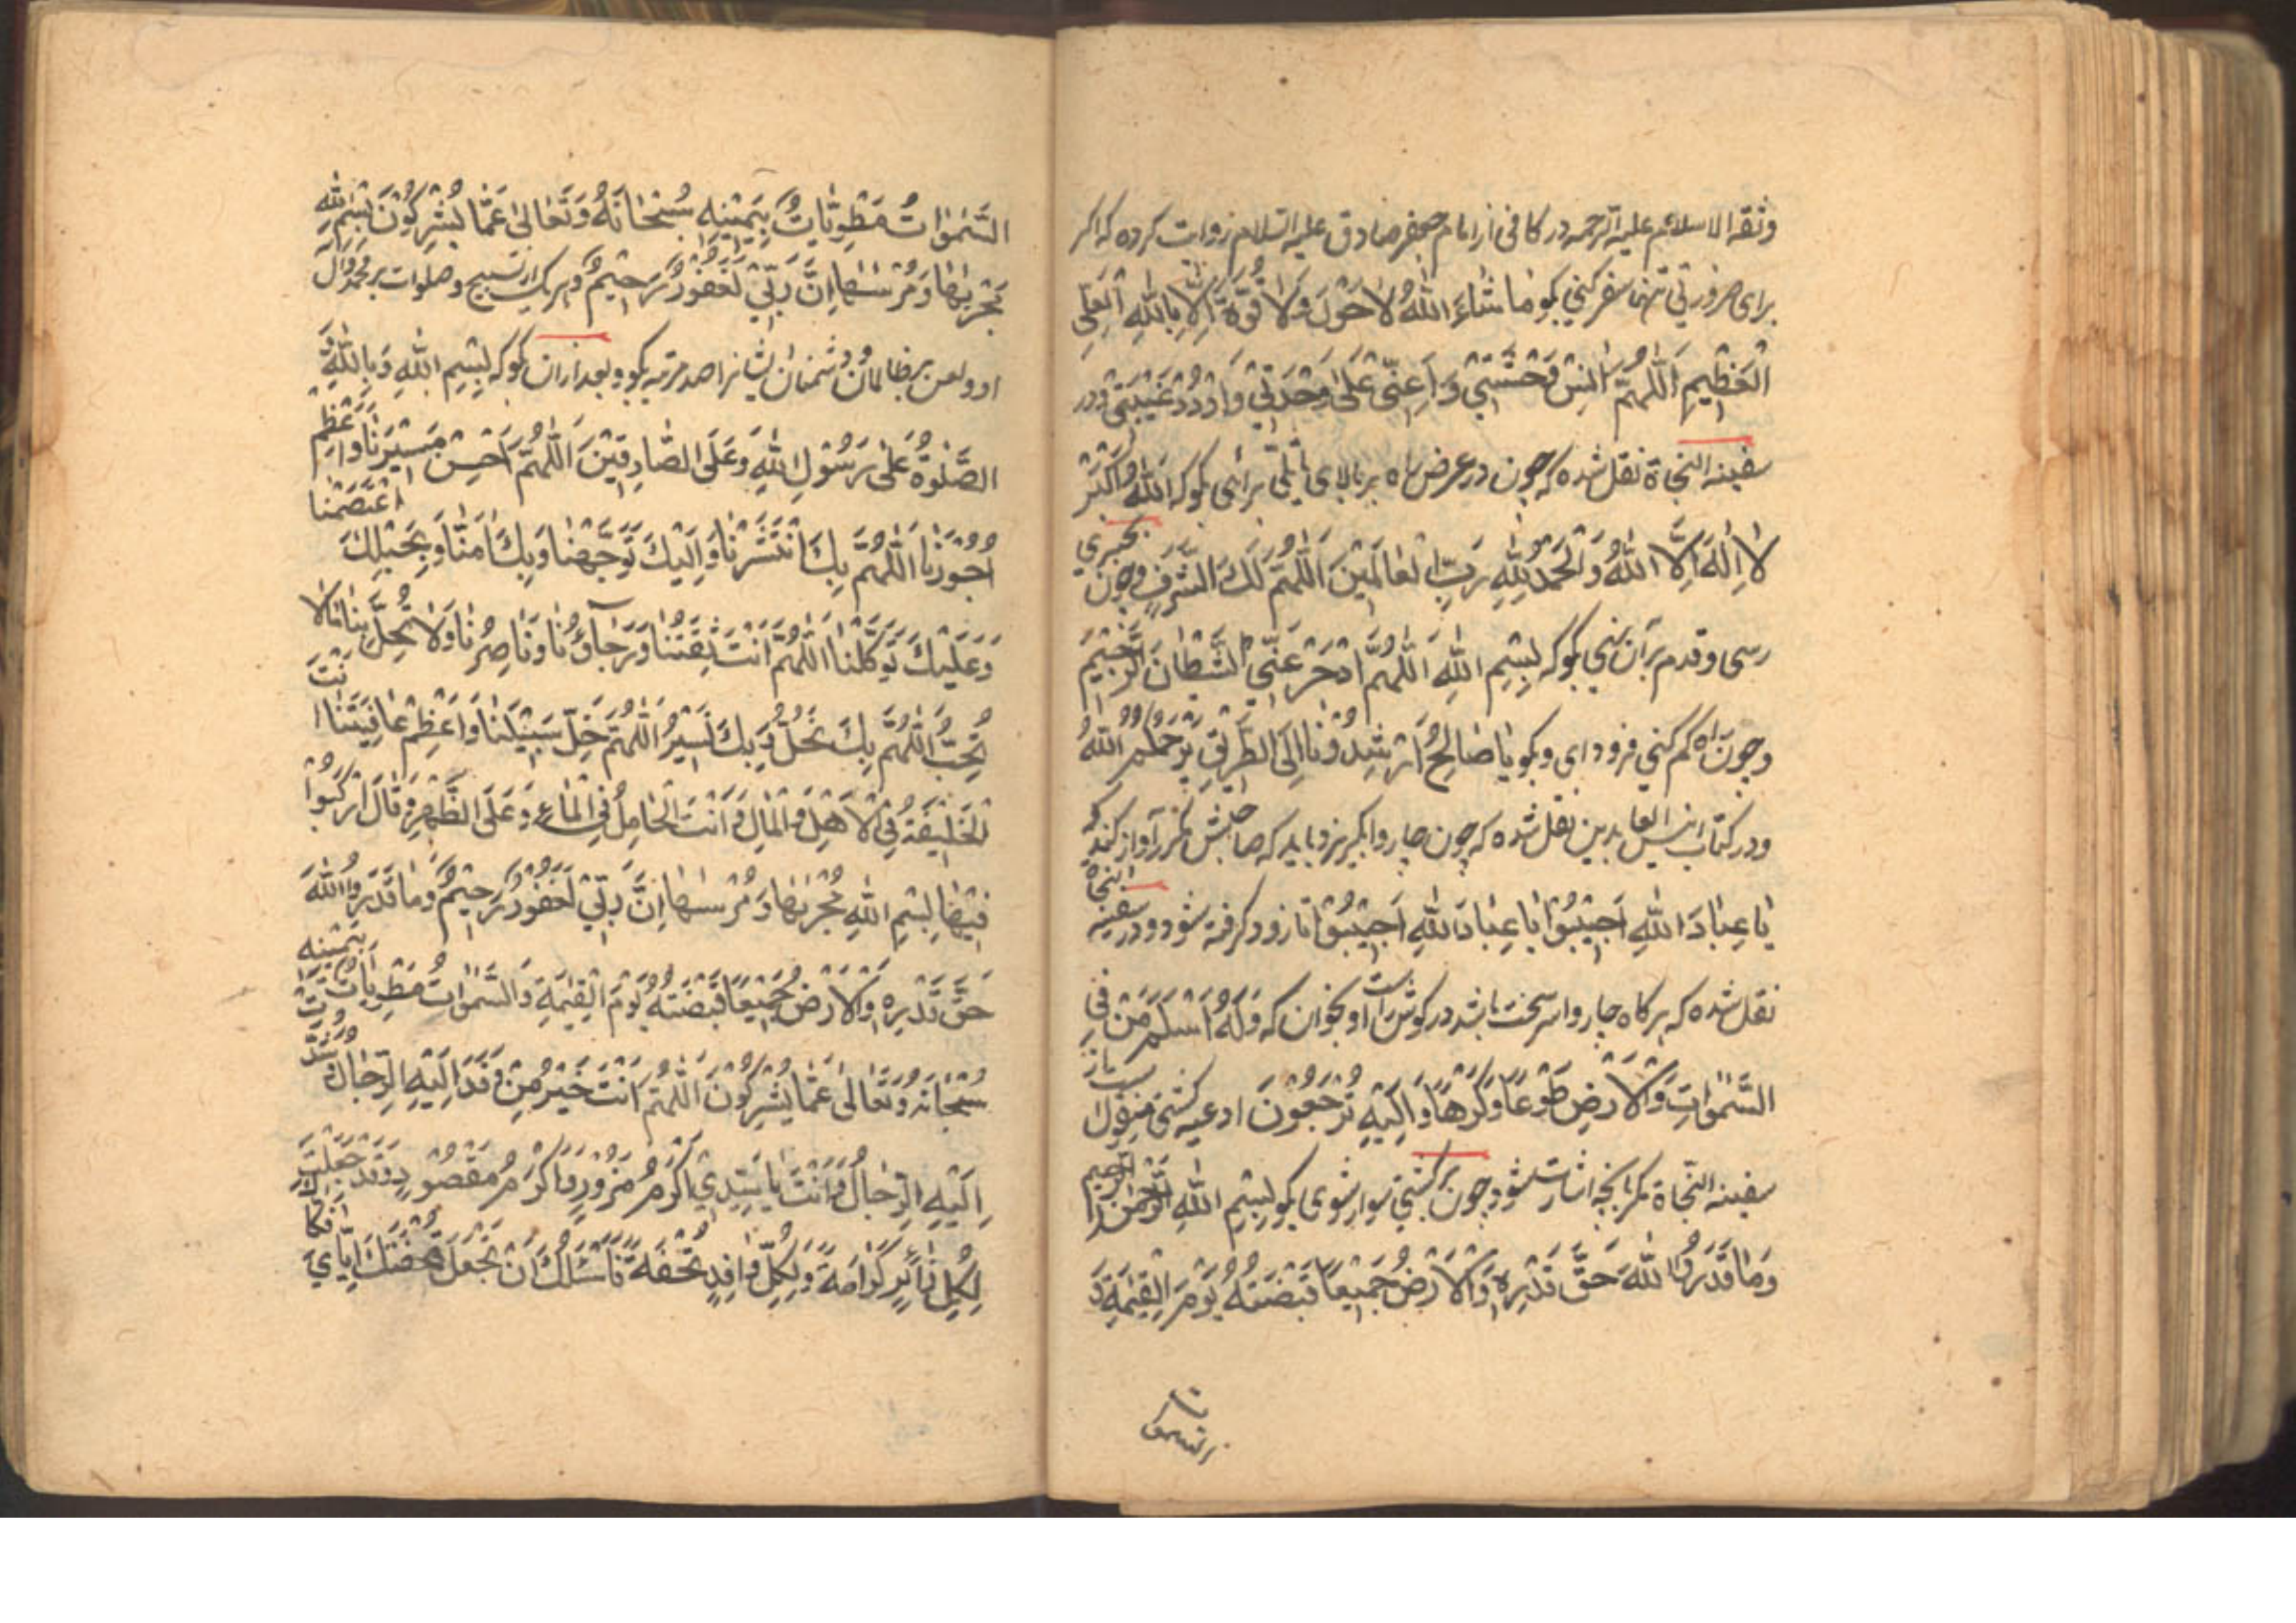 وثقة الاسلام عليه الرحمه در کافی از امام جعفر صادق علیه السلام روایت کرده که اکر
برای ضرورتی تنها سفر کنی بکو ما شاءَ اللهُ لا حَوْلَ وَلا قُوَّةَ اِلّا بِاللهِ الْعَلِیِّ
الْعَظِیمِ اَللّٰهُمَّ انِسْ وَحْشَتِی وَاَعِنِّی عَلیٰ وَحْدَتِی وَاَدِّ غَیْبَتِی ودر
سفینه النجاة نقل شده که چون در عرض راه بر بالای تلّی برائی بکو که اَللهُ اَکْبَرُ
لا اِلٰهَ اِلَّا اللهُ وَالْحَمْدُ لِلّٰهِ رَبِّ الْعالَمِینَ اَللّٰهُمَّ لَكَ الشَّرَفُ وچون بجسری
رسی وقدم بر آن نهی بکو که بِسْمِ اللهِ اَللّٰهُمَّ ادْحَرْ عَنِّی الشَّیْطانَ الرَّجِیمَ
وچون راه کم کنی فرود ای وبکو یا صالِحُ اَرْشِدُونا اِلَی الطَّرِیقِ یَرْحَمُکُمُ اللهُ
ودر کتاب انیس العابدین نقل شده که چون چاروا بکریزد باید که صاحبش مکرر آواز کند که
یا عِبادَ اللهِ اَجِیبُوا یا عِبادَ اللهِ اَجِیبُوا تا زود کرفته شود ودر سفینه النجاة
نقل شده که هر کاه چاروا سرسخت باشد در کوش راست او بخوان که وَلَهُ اَسْلَمَ مَنْ فِی
السَّمٰواتِ وَالْاَرْضِ طَوْعًا وَکَرْهًا وَاِلَیْهِ تُرْجَعُونَ ادعیه کشتی منقول است از
سفینه النجاة مکر بآنچه اشارت شود چون بر کشتی سوار شوی بکو بِسْمِ اللهِ الرَّحْمٰنِ الرَّحِیمِ
وَما قَدَرُوا اللهَ حَقَّ قَدْرِهِ وَالْاَرْضُ جَمِیعًا قَبْضَتُهُ یَوْمَ الْقِیٰمَةِ وَ
السَّمٰواتُ مَطْوِیّاتٌ بِیَمِینِهِ سُبْحانَهُ وَتَعالیٰ عَمّا یُشْرِکُونَ بِسْمِ اللهِ
مَجْریٰها وَمُرْسٰیها اِنَّ رَبِّی لَغَفُورٌ رَحِیمٌ وهر یک از تسبیح وصلوات بر محمد وآل
او ولعن بر ظالمان ودشمنان ایشانرا صد مرتبه بکو وبعد از ان بکو که بِسْمِ اللهِ وَبِاللهِ وَ
الصَّلوٰةُ عَلیٰ رَسُولِ اللهِ وَعَلَی الصّادِقِینَ اَللّٰهُمَّ اَحْسِنْ مَسِیرَنا وَاَعْظِمْ
اُجُورَنا اَللّٰهُمَّ بِكَ انْتَشَرْنا وَاِلَیْكَ تَوَجَّهْنا وَبِكَ امَنّا وَبِحَبْلِكَ اعْتَصَمْنا
وَعَلَیْكَ تَوَکَّلْنا اَللّٰهُمَّ اَنْتَ ثِقَتُنا وَرَجاؤُنا وَناصِرُنا وَلا تُحِلَّ بِنا ما لا
تُحِبُّ اَللّٰهُمَّ بِكَ نَحُلُّ وَبِكَ نَسِیرُ اَللّٰهُمَّ خَلِّ سَبِیلَنا وَاَعْظِمْ عافِیَتَنا اَنْتَ
الْخَلِیفَةُ فِی الْاَهْلِ وَالْمالِ وَاَنْتَ الْحامِلُ فِی الْماءِ وَعَلَی الظَّهْرِ وَقالَ ارْکَبُوا
فِیها بِسْمِ اللهِ مَجْریٰها وَمُرْسٰیها اِنَّ رَبِّی لَغَفُورٌ رَحِیمٌ وَما قَدَرُوا اللهَ
حَقَّ قَدْرِهِ وَالْاَرْضُ جَمِیعًا قَبْضَتُهُ یَوْمَ الْقِیٰمَةِ وَالسَّمٰواتُ مَطْوِیّاتٌ بِیَمِینِهِ
سُبْحانَهُ وَتَعالیٰ عَمّا یُشْرِکُونَ اَللّٰهُمَّ اَنْتَ خَیْرُ مَنْ وَفَدَ اِلَیْهِ الرِّجالُ وَشُدَّتْ
اِلَیْهِ الرِّحالُ وَاَنْتَ یا سَیِّدِی اَکْرَمُ مَزُورٍ وَاَکْرَمُ مَقْصُودٍ وَقَدْ جَعَلْتَ
لِکُلِّ زائِرٍ کَرامَةً وَلِکُلِّ وافِدٍ تُحْفَةً فَاَسْئَلُكَ اَنْ تَجْعَلَ تُحْفَتَكَ اِیّایَ فَکاكَ